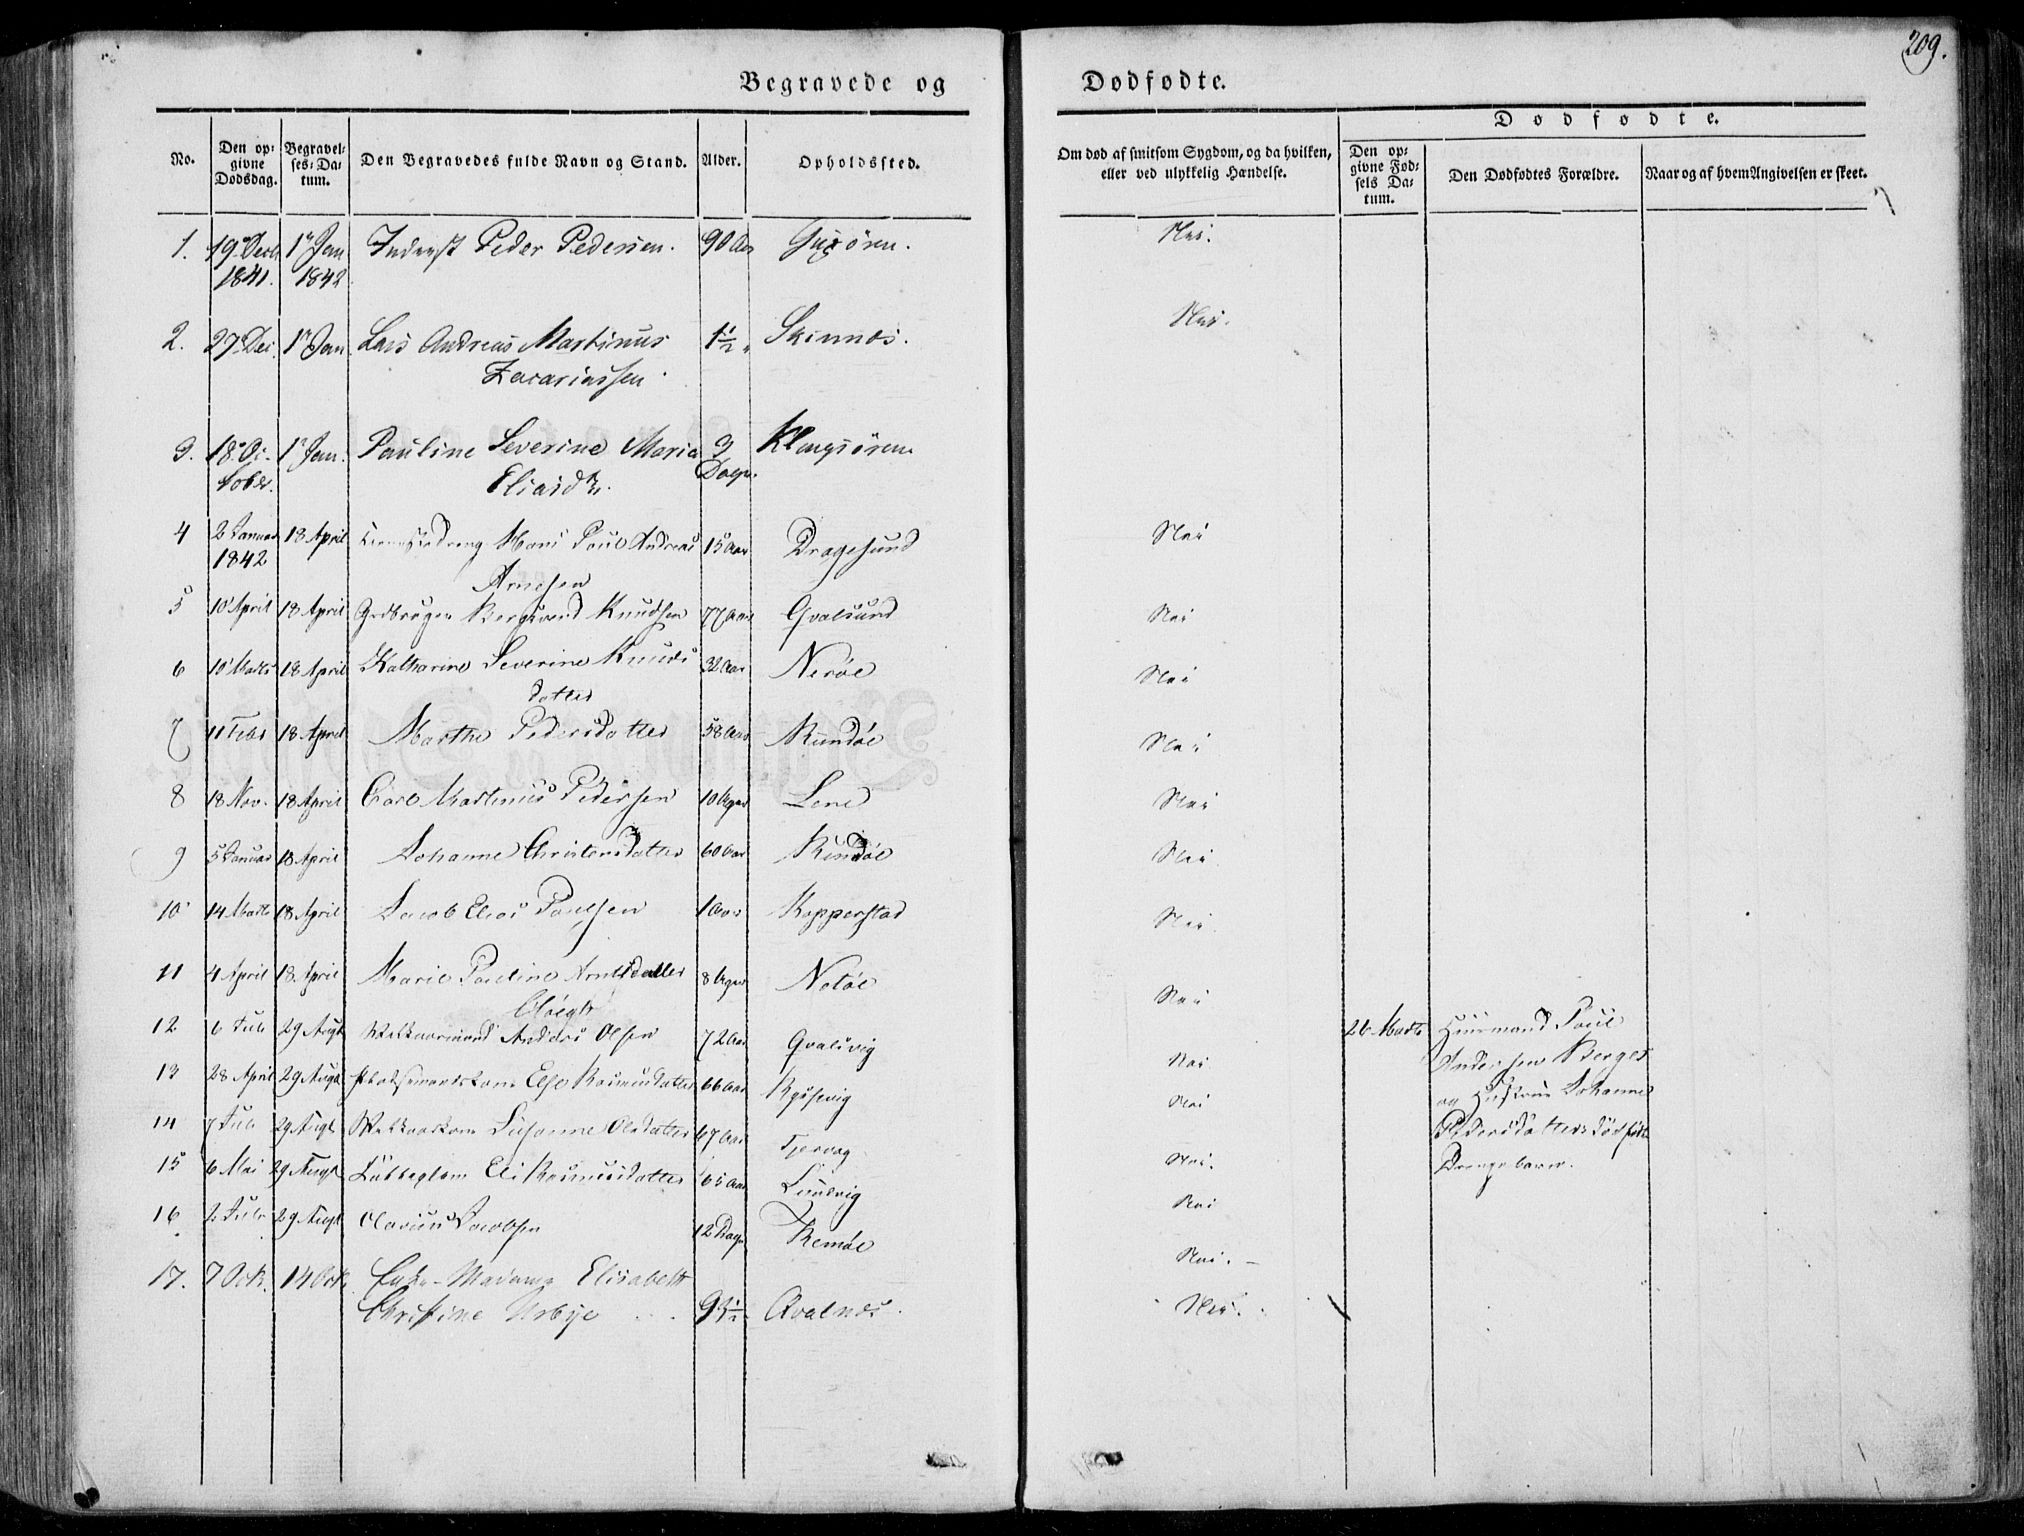 209.
Begravede og Dødfødte.
No. Den op- givne Dødsdag. Begravel- ses-Da- tum. Den Begravedes fulde Navn og Stand. Alder. Opholdssted. Om død af smitsom Sygdom, og da hvilken, eller ved ulykkelig Hændelse. Dødfødte. Den op- givne Fød- sels Da- tum. Den Dødfødtes Forældre. Naar og af hvem Angivelsen er skeet.
1. 19 Decb 1Jan Inderst Peder Pedersen. 90 Aar Nei.
1841. 1842
2. 27 Dec 1 Jan Lars Andreas Martinus 1½ Skinnes. Nei.
Zacariassen
3. 18 Oc- 1 Jan. Pauline Severine Maria 3 Klungsøren
tober. Eliasdtr. Dage
4 2 Januar 18 April Hans Paul Andreas 15 Aar Dragesund Nei
1842 Arnesen
5 10 April 18 April Knudsen 77 Aar Qvalsund Nei
6 10 Marts 18 April Katharine Severine Knuds 32 Aar Nerøe Nei
datter
7 11 Febr 18 April Marthe Pedersdatter 58 Aar Rundøe Nei
8 18 Nov. 18 April Carl Martinus Pedersen 10 Uger Lene Nei
9 5 Januar 18 April Johanne Christensdatter 60 Aar Rundøe Nei
10 14 Marts 18 April Jacob Elias Paulsen 1 Aar Kopperstad Nei
11 4 April 18 April Marie Pauline Arnesdatter 8 Uger Notøe Nei
12 6 Juli 29 Augt Anders Olsen 72 Aar Qvalsvig Nei 26 Marts Huusmand Paul
Andersen Berges
13 28 April 29 Augt Else Rasmusdatter 66 Aar Nei og Hustrue Johanne
14 7 Juli 29 Augt Susanne Olsdatter 67 Aar Tjervaag Nei. Pedersdatters dødfødt
15 6 Mai 29 Augt Eli Rasmusdatter 65 Aar Nei Drengebarn.
16 2 Juli 29 Augt Jacobsen 12 Dage Remøe Nei.
17. 7 Oct. 14 Oct. Enke-Madame Elisabeth
Christine Arbye 93½ Qvalnes. Nei.